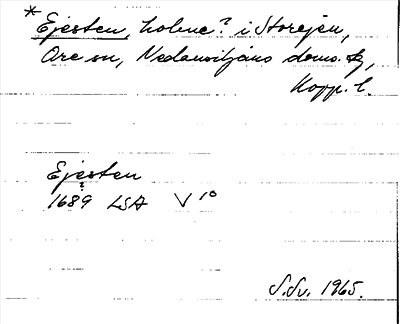 * Ejesten, holme? i Storejen,
Ore sn, Nedansiljans doms.,
Kopp. l.
Ejesten
?
1689 LSA V 10
S.Sv. 1965.